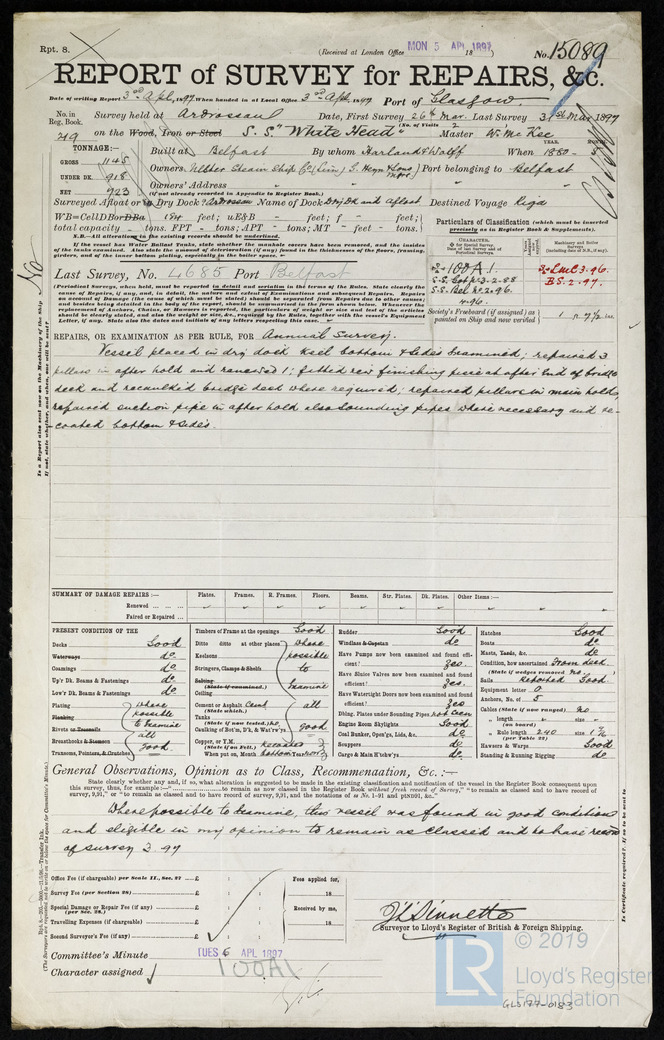 Rpt. 8.
(Received at London Office MON 5 APL 1897 18 )
No. 15089
REPORT of SURVEY for REPAIRS, &c.
Date of writing Report 3rd Apl, 1897 When handed in at Local Office 3rd Apl. 1897 Port of Glasgow.
No. in Reg. Book. Survey held at Ardrossan Date, First Survey 26th Mar. Last Survey 31st Mar 1897
(No. of Visits 2
719 on the Wood, Iron or Steel S.S. "White Head" Master W. McKee
TONNAGE:—
YEAR. MONTH.
Built at Belfast By whom Harland & Wolff When 1880 -
GROSS 1145
Owners Ulster Steam Ship Co (Lim) G. Heyn & Sons Mgrs Port belonging to Belfast
UNDER DK. 918
Owners' Address
NET 723
(if not already recorded in Appendix to Register Book.)
Surveyed Afloat or in Dry Dock? Ardrossan Name of Dock Dry Dk and afloat Destined Voyage Riga
WB=CellDBorDBa feet; uE&B - feet; f - feet;
total capacity tons. FPT - tons; APT - tons; MT - feet - tons.
Particulars of Classification (which must be inserted precisely as in Register Book & Supplements).
N.B.—All alterations in the existing records should be underlined.
If the vessel has Water Ballast Tanks, state whether the manhole covers have been removed, and the insides of the tanks examined. Also state the amount of deterioration (if any) found in the thicknesses of the floors, framing, girders, and of the inner bottom plating, especially in the boiler space.
CHARACTER.
Machinery and Boiler Surveys (including date of N.B., if any).
Last Survey, No. 4685 Port Belfast
100A.1.
LMC 3.96.
B.S. 2.97.
S.S. Bel. No. 2-96.
4-96.
(Periodical Surveys, when held, must be reported in detail and seriatim in the terms of the Rules. State clearly the cause of Repairs, if any, and, in detail, the nature and extent of Examinations and subsequent Repairs. Repairs on account of Damage (the cause of which must be stated) should be separated from Repairs due to other causes;
Society's Freeboard (if assigned) as painted on Ship and now verified 1 ft 7½ ins.
REPAIRS, OR EXAMINATION AS PER RULE, FOR Annual Survey.
Vessel placed in dry dock keel bottom & sides examined; repaired 3
pillars in after hold and renewed 1; fitted new finishing piece at after end of bridge
deck and recaulked bridge deck where required; repaired pillars in main hold,
repaired suction pipe in after hold also sounding pipes where necessary and re-
coated bottom & sides.
Is a Report also sent now on the Machinery of the Ship No
If not, state whether, and when, one will be sent?
SUMMARY OF DAMAGE REPAIRS:— Plates. Frames. R. Frames. Floors. Beams. Str. Plates. Dk. Plates. Other Items:—
Renewed ... ... ...
Faired or Repaired ...
PRESENT CONDITION OF THE
Decks Good
Waterways do
Coamings do
Up'r Dk. Beams & Fastenings do
Low'r Dk. Beams & Fastenings do
Plating where
Planking possible
Rivets or Treenails to examine
Breasthooks & Stemson all
Transoms, Pointers, & Crutches good.
Timbers of Frame at the openings Good
Ditto ditto at other places where
Keelsons possible
Stringers, Clamps & Shelfs to
Salting (State if examined.) examine
Ceiling
Cement or Asphalt Cemt (State which.) all
Tanks (State if now tested.)
Caulking of Bot'm, D'k, & Wat'rw'ys good
Copper, or Y.M. (State if on Felt.) recoated
When put on, Month bottom
Rudder Good
Windlass & Capstan do
Have Pumps now been examined and found efficient? Yes.
Have Sluice Valves now been examined and found efficient? Yes.
Have Watertight Doors now been examined and found efficient? Yes
Dblng. Plates under Sounding Pipes not seen
Engine Room Skylights Good.
Coal Bunker, Open'gs, Lids, &c. do
Scuppers do
Cargo & Main H'tchw'ys do
Hatches Good
Boats do
Masts, Yards, &c. do
Condition, how ascertained From deck.
(State if wedges removed no.
Sails Reported Good.
Equipment letter O
Anchors, No. of 5
Cables (State if now ranged) no
„ length (on board) size
„ Rule length 240 size
(per Table 22)
Hawsers & Warps Good
Standing & Running Rigging do
General Observations, Opinion as to Class, Recommendation, &c. :—
State clearly whether any, if so, what alteration is suggested to be made in the existing classification and notification of the vessel in the Register Book consequent upon
this survey, thus, for example :—" to remain as now classed in the Register Book without fresh record of Survey," "to remain as classed and to have record of
survey, 9,91," or "to remain as classed and to have record of survey, 9,91, and the notations of ss No. 1-91 and ptND91, &c."
Where possible to examine, this vessel was found in good condition
and eligible in my opinion to remain as classed and to have record
of survey 3.97
Office Fee (if chargeable) per Scale II., Sec. 27 ... £ : :
Survey Fee (per Section 28) £ : :
Special Damage or Repair Fee (if any) (per Sec. 28.) £ : :
Travelling Expenses (if chargeable) £ : :
Second Surveyor's Fee (if any) £ : :
Fees applied for,
18
Received by me,
18
Surveyor to Lloyd's Register of British & Foreign Shipping.
Committee's Minute TUES 6 APL 1897
Character assigned 100A1
© 2019
LR
Lloyd's Register
Foundation
GLS177-0183